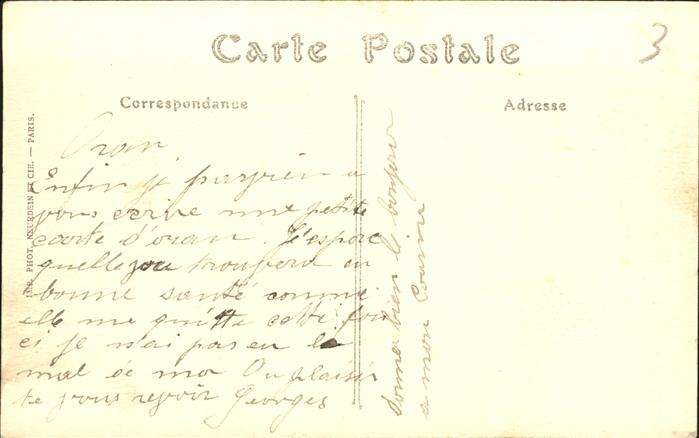 Carte Postale
3
Correspondance
Adresse
Oran
Enfin je parvien a
vous ecrire une petite
carte d'oran. J'espere
quelle vous trouvera en
bonne santé comme
elle me quitte cette foi
ci je n'ai pas eu le
mal de mer Au plaisir
te vous revoir Georges
Donner bien le bonjour
a mon
IMP. PHOT. NEURDEIN ET CIE. — PARIS.